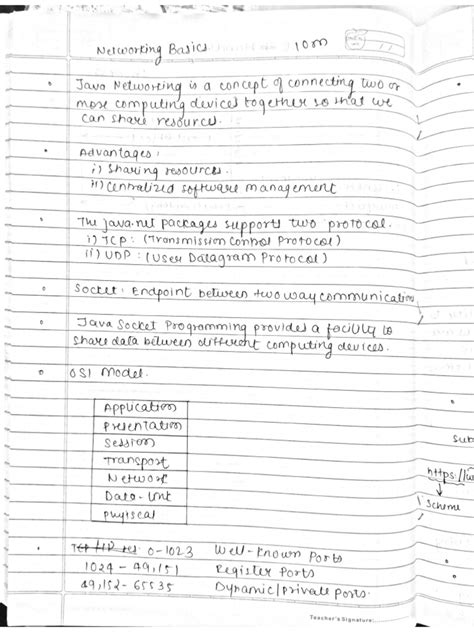 Networking Basics 10m
Java Networking is a concept of connecting two or
more computing devices together so that we
can share resources.
Advantages:
i) Sharing resources.
ii) Centralized software management
The java.net packages supports two protocol.
i) TCP : (Transmission Control Protocol)
ii) UDP : (User Datagram Protocol)
Socket: Endpoint between two way communication
Java Socket Programming provides a facility to
share data between different computing devices.
OSI Model.
Application
Presentation
Session
Transport
Network
Data-link
Physical
0-1023 Well-Known Ports
1024 - 49,151 Register Ports
49,152 - 65535 Dynamic/private ports.
Sub
https://
Scheme
Teacher's Signature: